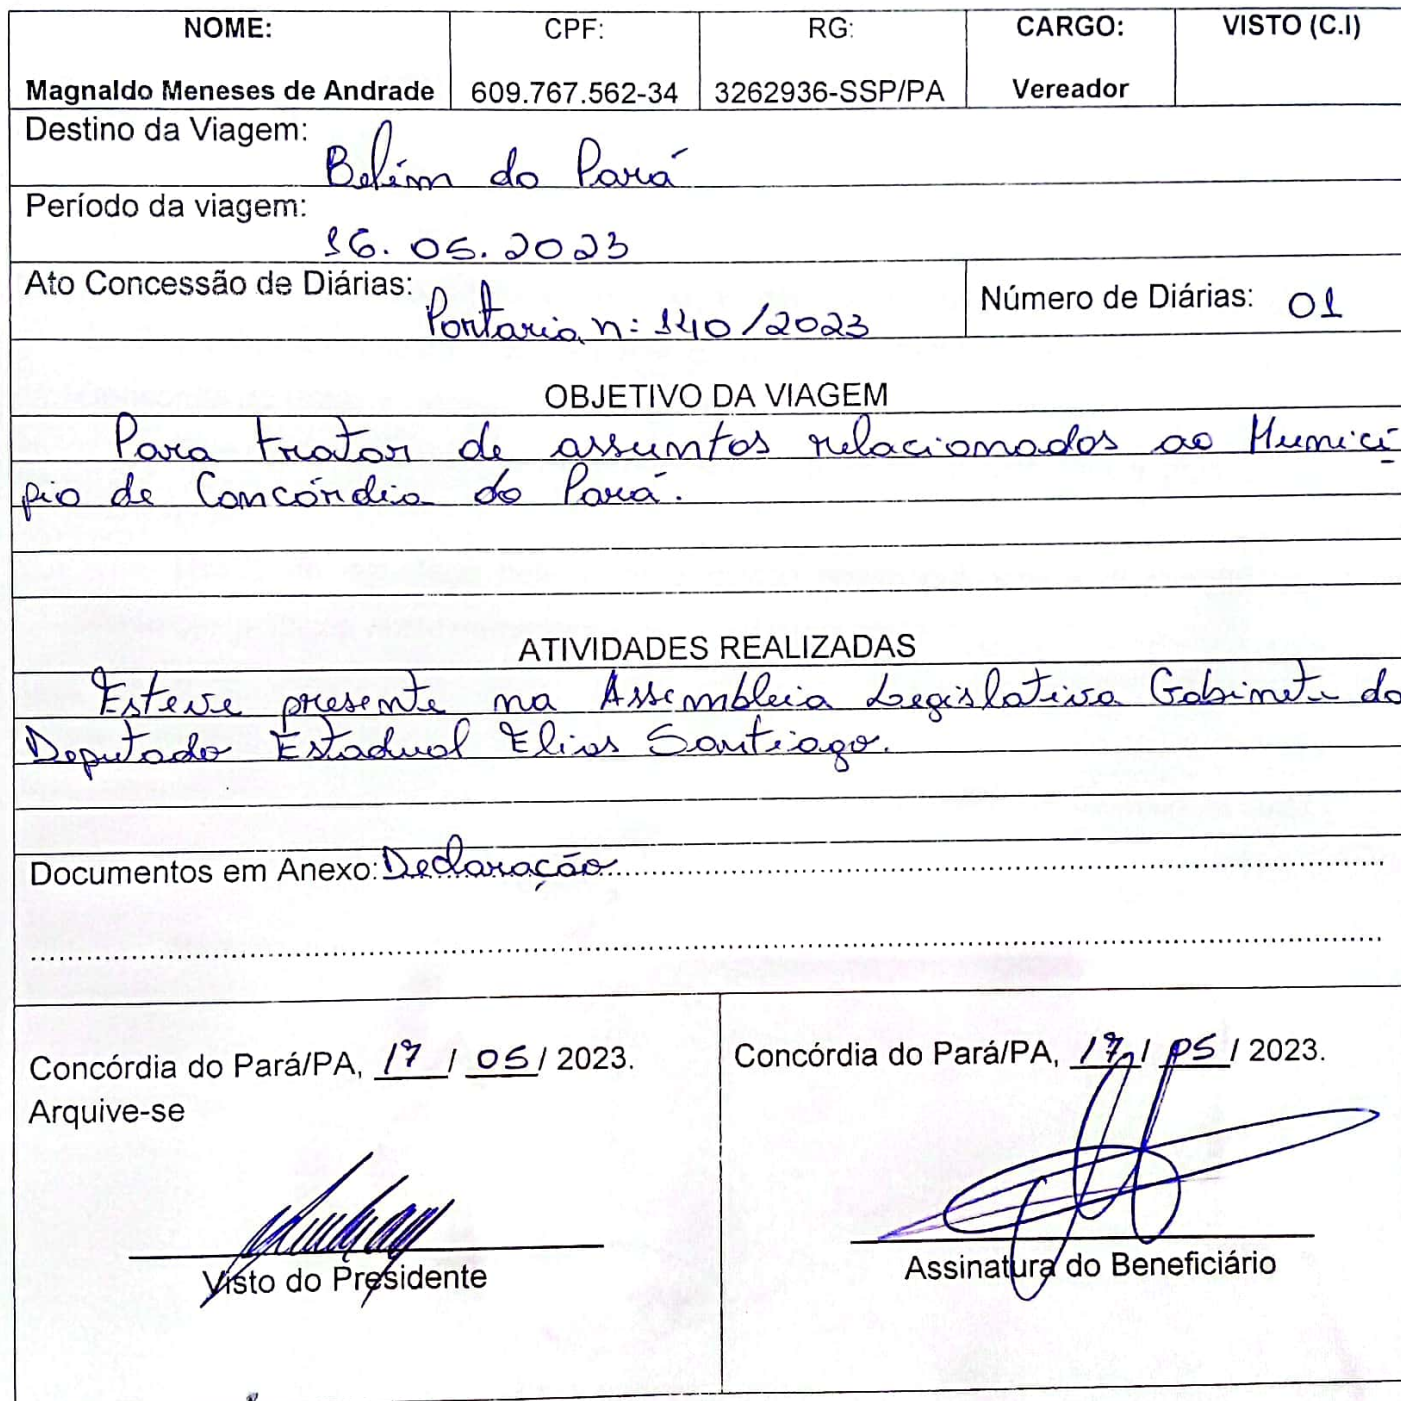 NOME: CPF: RG: CARGO: VISTO (C.I)
Magnaldo Meneses de Andrade 609.767.562-34 3262936-SSP/PA Vereador
Destino da Viagem:
Belém do Pará
Período da viagem:
16.05.2023
Ato Concessão de Diárias: Número de Diárias: 01
Portaria n: 140/2023
OBJETIVO DA VIAGEM
Para tratar de assuntos relacionados ao Municí
pio de Concórdia do Pará.
ATIVIDADES REALIZADAS
Esteve presente na Assembleia Legislativa Gabinete do
Deputado Estadual Elias Santiago.
Documentos em Anexo: Declaração
Concórdia do Pará/PA, 17 / 05 / 2023. Concórdia do Pará/PA, 17 / 05 / 2023.
Arquive-se
Visto do Presidente Assinatura do Beneficiário